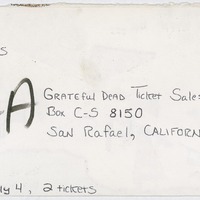 s
A
Grateful Dead Ticket Sales
Box C-S 8150
San Rafael, Californ
ly 4, 2 tickets